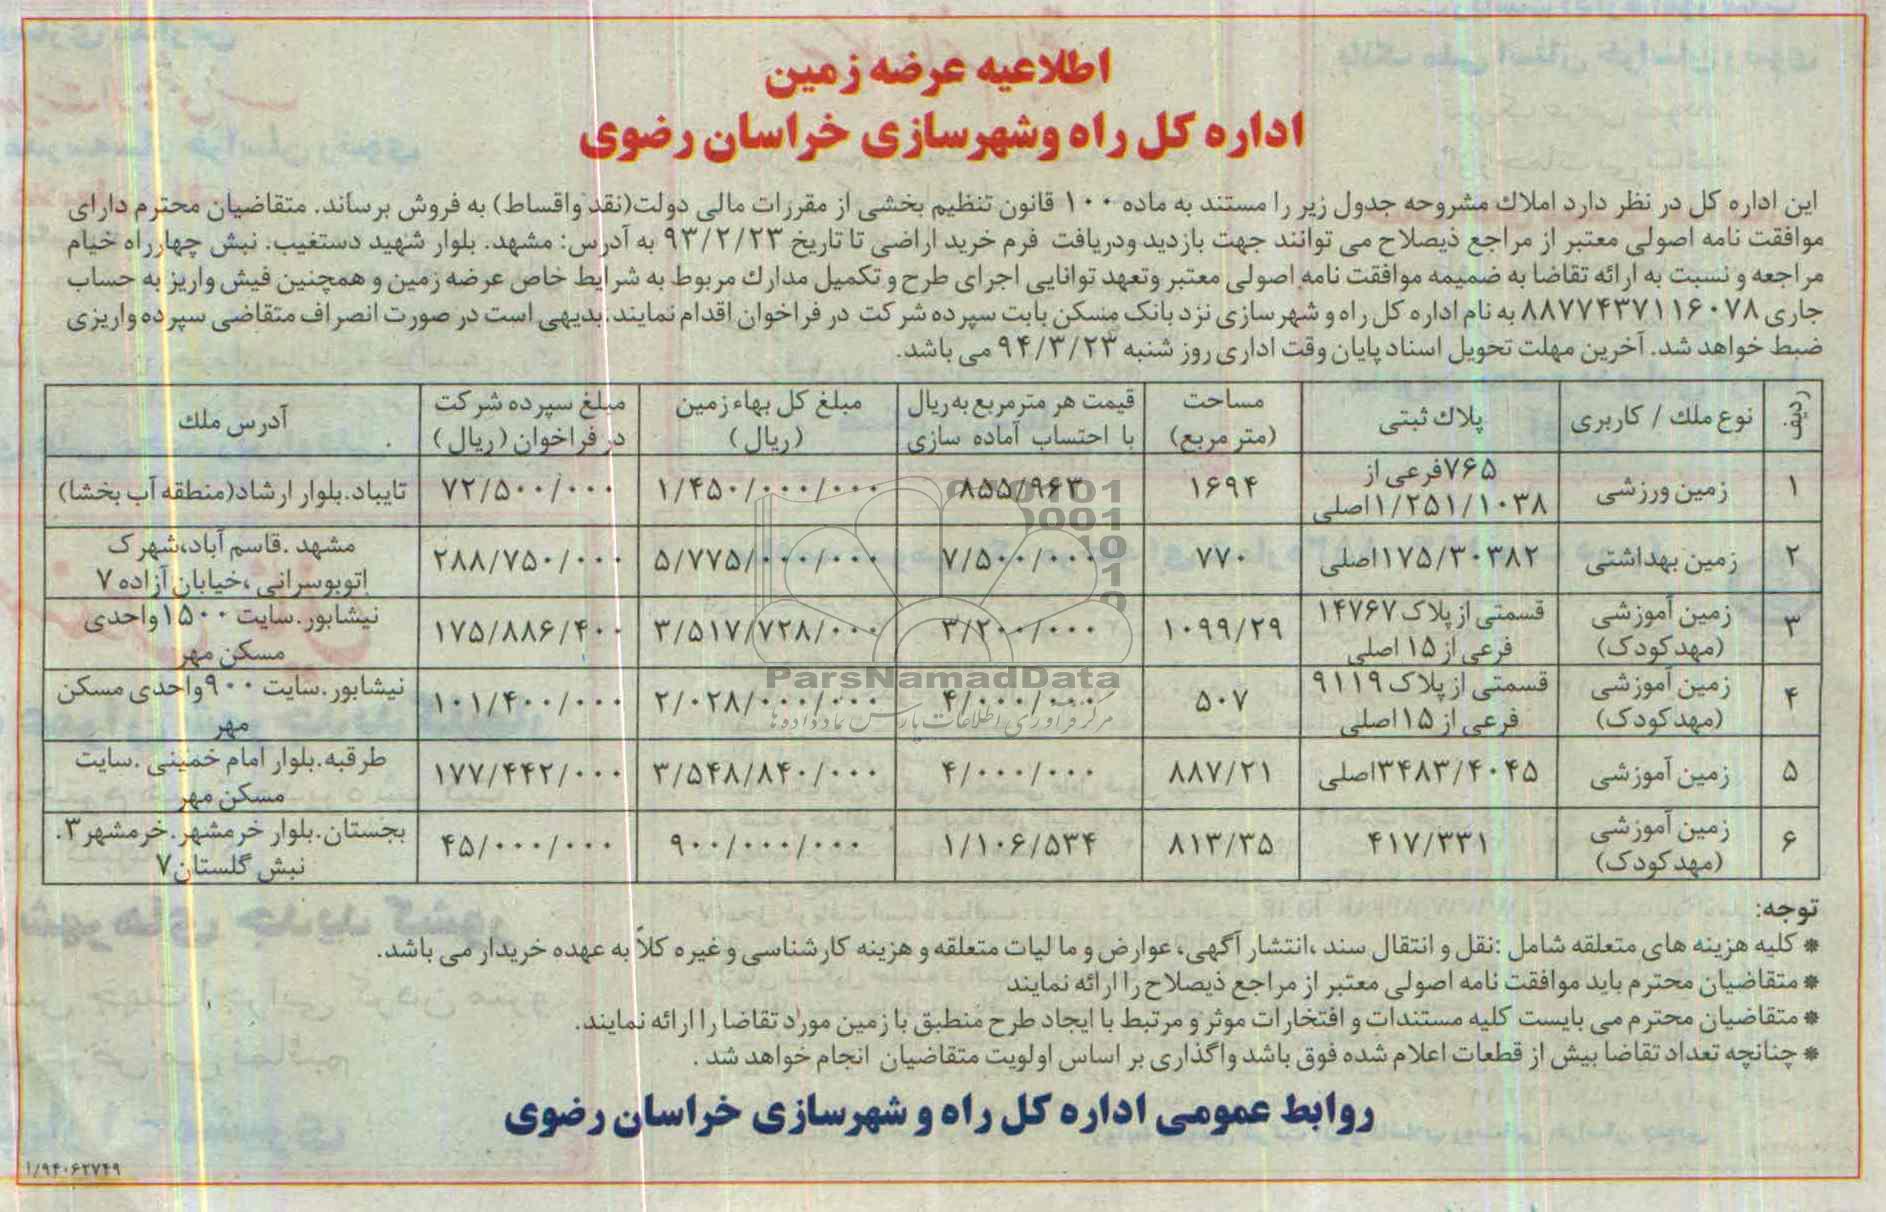 اطلاعیه عرضه زمین
اداره کل راه وشهرسازی خراسان رضوی
این اداره کل در نظر دارد املاك مشروحه جدول زیر را مستند به ماده ۱۰۰ قانون تنظیم بخشی از مقررات مالی دولت(نقد واقساط) به فروش برساند. متقاضیان محترم دارای
موافقت نامه اصولی معتبر از مراجع ذیصلاح می توانند جهت بازدید ودریافت فرم خرید اراضی تا تاریخ ۹۳/۲/۲۳ به آدرس: مشهد. بلوار شهید دستغیب. نبش چهارراه خیام
مراجعه و نسبت به ارائه تقاضا به ضمیمه موافقت نامه اصولی معتبر وتعهد توانایی اجرای طرح و تکمیل مدارك مربوط به شرایط خاص عرضه زمین و همچنین فیش واریز به حساب
جاری ۸۸۷۷۴۳۷۱۱۶۰۷۸ به نام اداره کل راه و شهرسازی نزد بانک مسکن بابت سپرده شرکت در فراخوان اقدام نمایند.بدیهی است در صورت انصراف متقاضی سپرده واریزی
ضبط خواهد شد. آخرین مهلت تحویل اسناد پایان وقت اداری روز شنبه ۹۴/۳/۲۳ می باشد.
ردیف نوع ملك / کاربری پلاك ثبتی مساحت (متر مربع) قیمت هر مترمربع به ریال با احتساب آماده سازی مبلغ کل بهاء زمین (ریال) مبلغ سپرده شرکت در فراخوان (ریال) آدرس ملك
۱ زمین ورزشی ۷۶۵فرعی از ۱/۲۵۱/۱۰۳۸اصلی ۱۶۹۴ ۸۵۵/۹۶۳ ۱/۴۵۰/۰۰۰/۰۰۰ ۷۲/۵۰۰/۰۰۰ تایباد.بلوار ارشاد(منطقه آب بخشا)
۲ زمین بهداشتی ۱۷۵/۳۰۳۸۲اصلی ۷۷۰ ۷/۵۰۰/۰۰۰ ۵/۷۷۵/۰۰۰/۰۰۰ ۲۸۸/۷۵۰/۰۰۰ مشهد .قاسم آباد،شهرک اتوبوسرانی ،خیابان آزاده ۷
۳ زمین آموزشی (مهدکودک) قسمتی از پلاک ۱۴۷۶۷ فرعی از ۱۵ اصلی ۱۰۹۹/۲۹ ۳/۲۰۰/۰۰۰ ۳/۵۱۷/۷۲۸/۰۰۰ ۱۷۵/۸۸۶/۴۰۰ نیشابور.سایت ۱۵۰۰واحدی مسکن مهر
۴ زمین آموزشی (مهدکودک) قسمتی از پلاک ۹۱۱۹ فرعی از ۱۵اصلی ۵۰۷ ۴/۰۰۰/۰۰۰ ۲/۰۲۸/۰۰۰/۰۰۰ ۱۰۱/۴۰۰/۰۰۰ نیشابور.سایت ۹۰۰واحدی مسکن مهر
۵ زمین آموزشی ۳۴۸۳/۴۰۴۵اصلی ۸۸۷/۲۱ ۴/۰۰۰/۰۰۰ ۳/۵۴۸/۸۴۰/۰۰۰ ۱۷۷/۴۴۲/۰۰۰ طرقبه.بلوار امام خمینی .سایت مسکن مهر
۶ زمین آموزشی (مهدکودک) ۴۱۷/۳۳۱ ۸۱۳/۳۵ ۱/۱۰۶/۵۳۴ ۹۰۰/۰۰۰/۰۰۰ ۴۵/۰۰۰/۰۰۰ بجستان.بلوار خرمشهر.خرمشهر۳. نبش گلستان۷
ParsNamadData
مرکز فرآوری اطلاعات پارس نماد داده ها
توجه:
* کلیه هزینه های متعلقه شامل :نقل و انتقال سند ،انتشار آگهی، عوارض و ما لیات متعلقه و هزینه کارشناسی و غیره کلاً به عهده خریدار می باشد.
* متقاضیان محترم باید موافقت نامه اصولی معتبر از مراجع ذیصلاح را ارائه نمایند
* متقاضیان محترم می بایست کلیه مستندات و افتخارات موثر و مرتبط با ایجاد طرح منطبق با زمین مورد تقاضا را ارائه نمایند.
* چنانچه تعداد تقاضا بیش از قطعات اعلام شده فوق باشد واگذاری بر اساس اولویت متقاضیان انجام خواهد شد .
روابط عمومی اداره کل راه و شهرسازی خراسان رضوی
۱/۹۴۰۶۲۷۴۹